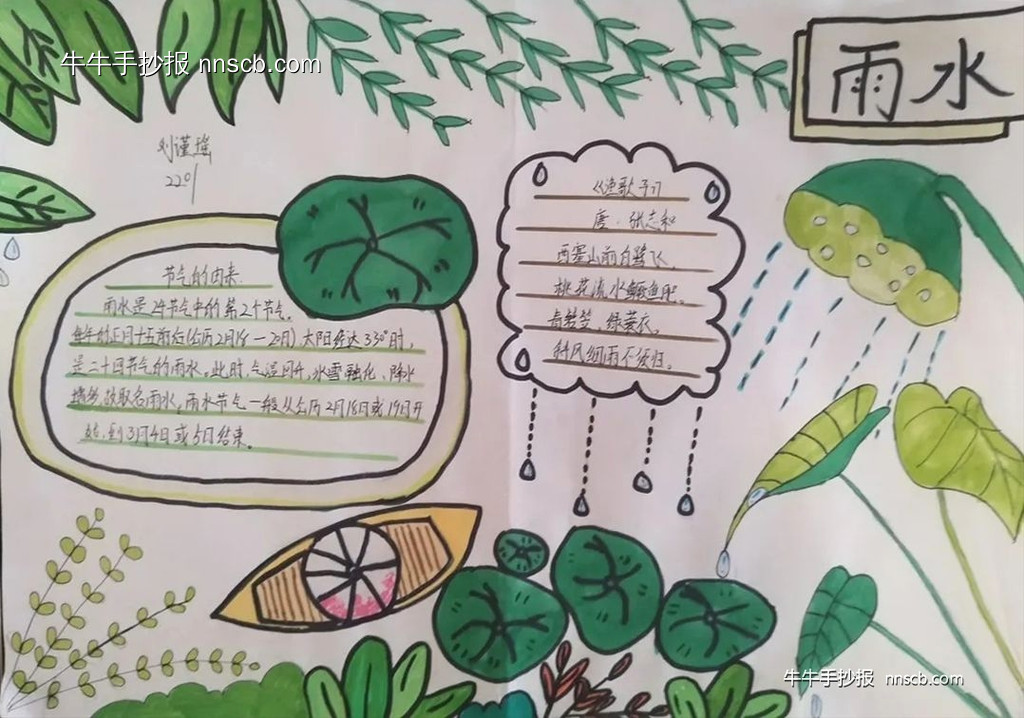 牛牛手抄报 nnscb.com
雨水
刘谨瑶
2201
节气的由来
雨水是24节气中的第2个节气。
每年的正月十五前后(公历2月18—20日)太阳经达330°时,
是二十四节气的雨水。此时,气温回升,冰雪融化、降水
增多,故取名雨水。雨水节气一般从公历2月18日或19日开
始,到3月4日或5日结束。
《渔歌子》
唐·张志和
西塞山前白鹭飞,
桃花流水鳜鱼肥。
青箬笠,绿蓑衣,
斜风细雨不须归。
牛牛手抄报 nnscb.com